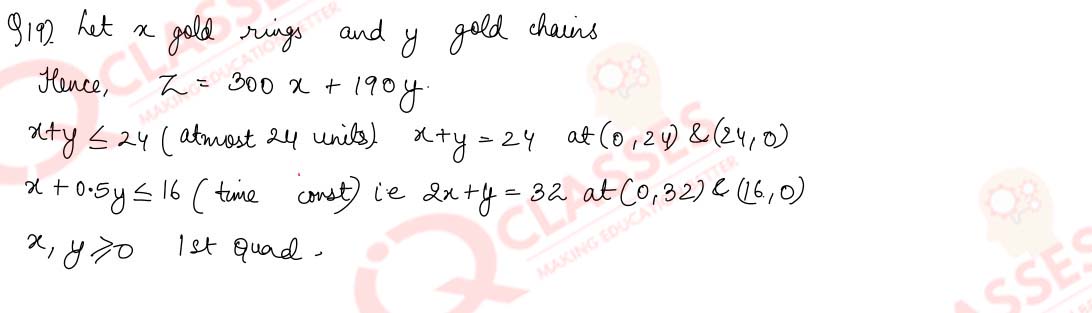 Q19). Let x gold rings and y gold chains
Hence, Z = 300 x + 190y.
x+y ≤ 24 (atmost 24 units) x+y = 24 at (0,24) & (24,0)
x + 0.5y ≤ 16 (time const) ie 2x+y = 32 at (0,32) & (16,0)
x, y ≥ 0 1st Quad.
IQ CLASSES
MAKING EDUCATION BETTER
IQ CLASSES
MAKING EDUCATION BETTER
ASSES